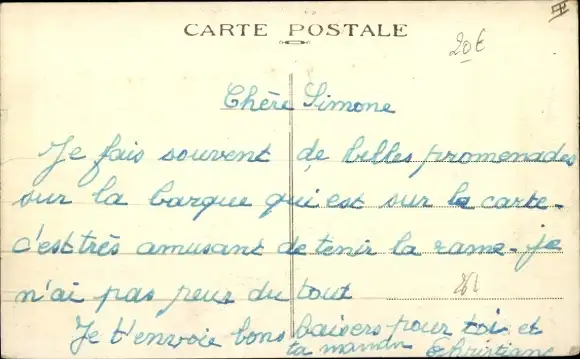 CARTE POSTALE
20€
Chère Simone
Je fais souvent de belles promenades
sur la barque qui est sur la carte-
c'est très amusant de tenir la rame- je
n'ai pas peur du tout
Je t'envoie bons baisers pour toi et
ta maman Christiane